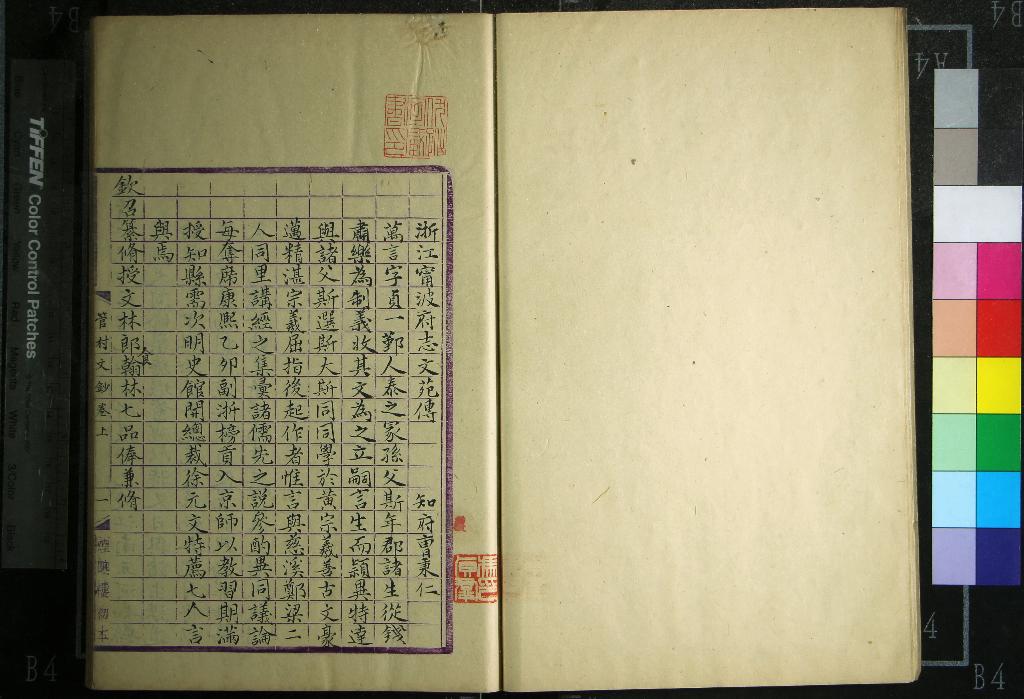 浙江甯波府志文苑傳　知府曹秉仁
萬言字貞一鄞人泰之冢孫父斯年郡諸生從錢
肅樂為制義收其文為之立嗣言生而穎異特達
與諸父斯選斯大斯同同學於黃宗羲善古文豪
邁精湛宗羲屈指後起作者惟言與慈溪鄭梁二
人同里講經之集彙諸儒先之說參酌異同議論
每奪席康熙乙卯副浙榜貢入京師以教習期滿
授知縣需次明史館開總裁徐元文特薦七人言
與焉
欽召纂脩授文林郎食翰林七品俸兼脩
管村文鈔卷上　一
TIFFEN Color Control Patches
B4
A4
B4
B4